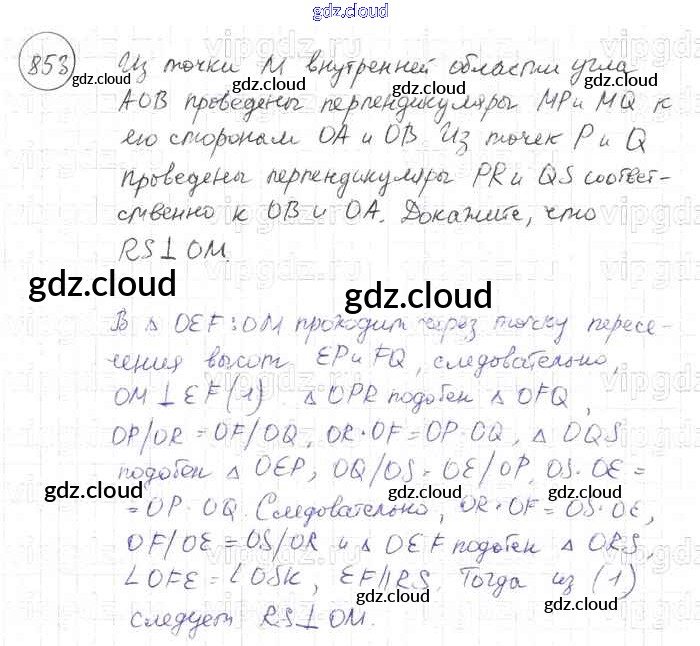 gdz.cloud
853
Из точки М внутренней области угла
АОВ проведены перпендикуляры МР и MQ к
его сторонам ОА и ОВ. Из точек Р и Q
проведены перпендикуляры PR и QS соответ-
ственно к ОВ и ОА. Докажите, что
RS⊥OM.
gdz.cloud gdz.cloud
В △ OEF: OM проходит через точку пересе-
чения высот EP и FQ, следовательно,
OM⊥EF (1). △ OPR подобен △ OFQ,
OP/OR = OF/OQ, OR·OF = OP·OQ, △ OQS
подобен △ OEP, OQ/OS = OE/OP, OS·OE =
= OP·OQ. Следовательно, OR·OF = OS·OE,
OF/OE = OS/OR и △ OEF подобен △ ORS,
∠OFE = ∠OSK, EF∥RS. Тогда из (1)
следует RS⊥OM.